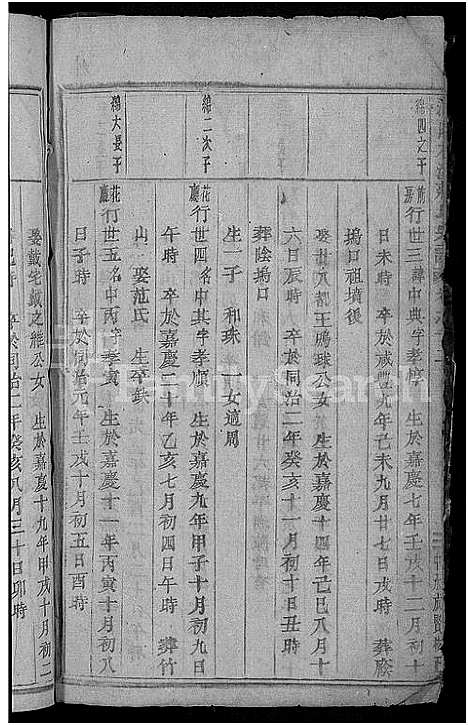 緜四之子
前房 行世三 諱中典 字孝惇 生於嘉慶七年壬戌十二月初十
日未時 卒於咸豐九年己未九月廿七日戌時 葬蔭
塢口祖墳脅
娶廿八都王鳴球公女 生於嘉慶十四年己巳八月十
六日辰時 卒於同治二年癸亥十一月初十日丑時
葬陰塢口
生一子 和珠 一女適周
緜二次子
花廳 行世四 名中其 字孝順 生於嘉慶九年甲子十月初九日
午時 卒於嘉慶二十年乙亥七月初四日午時 葬竹
山 娶范氏 生卒缺
緜大晏子
花廳 行世五 名中丙 字孝寅 生於嘉慶十一年丙寅十月初八
日子時 卒於同治元年壬戌十月初五日酉時
娶戴宅戴之熊公女 生於嘉慶十九年甲戌十月初二
卒於同治二年癸亥八月三十日卯時
FamilySearch